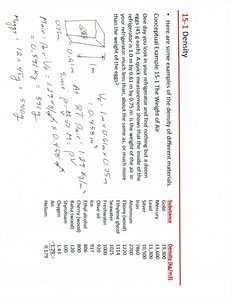 15-1 Density
• Here are some examples of the density of different materials.
Conceptual Example 15-1 The Weight of Air
One day you look in your refrigerator and find nothing but a dozen
eggs (45 g each). A quick measurement shows that the inside of the
refrigerator is 1.0 m by 0.61 m by 0.75 m. Is the weight of the air in
your refrigerator much less than, about the same as, or much more
than the weight of the eggs?
Substance Density (kg/m3)
Gold 19,300
Mercury 13,600
Lead 11,300
Silver 10,500
Iron 7860
Aluminum 2700
Ebony (wood) 1220
Ethylene glycol 1114
Seawater 1025
Freshwater 1000
Olive oil 920
Ice 917
Ethyl alcohol 806
Cherry (wood) 800
Balsa (wood) 120
Styrofoam 100
Oxygen 1.43
Air 1.29
Helium 0.179
1m
0.61m
0.75m
VR = 1m × 0.61m × 0.75m
= 0.458 m³
At RT ρair: 1.29 kg/m³
Since ρ = M/V